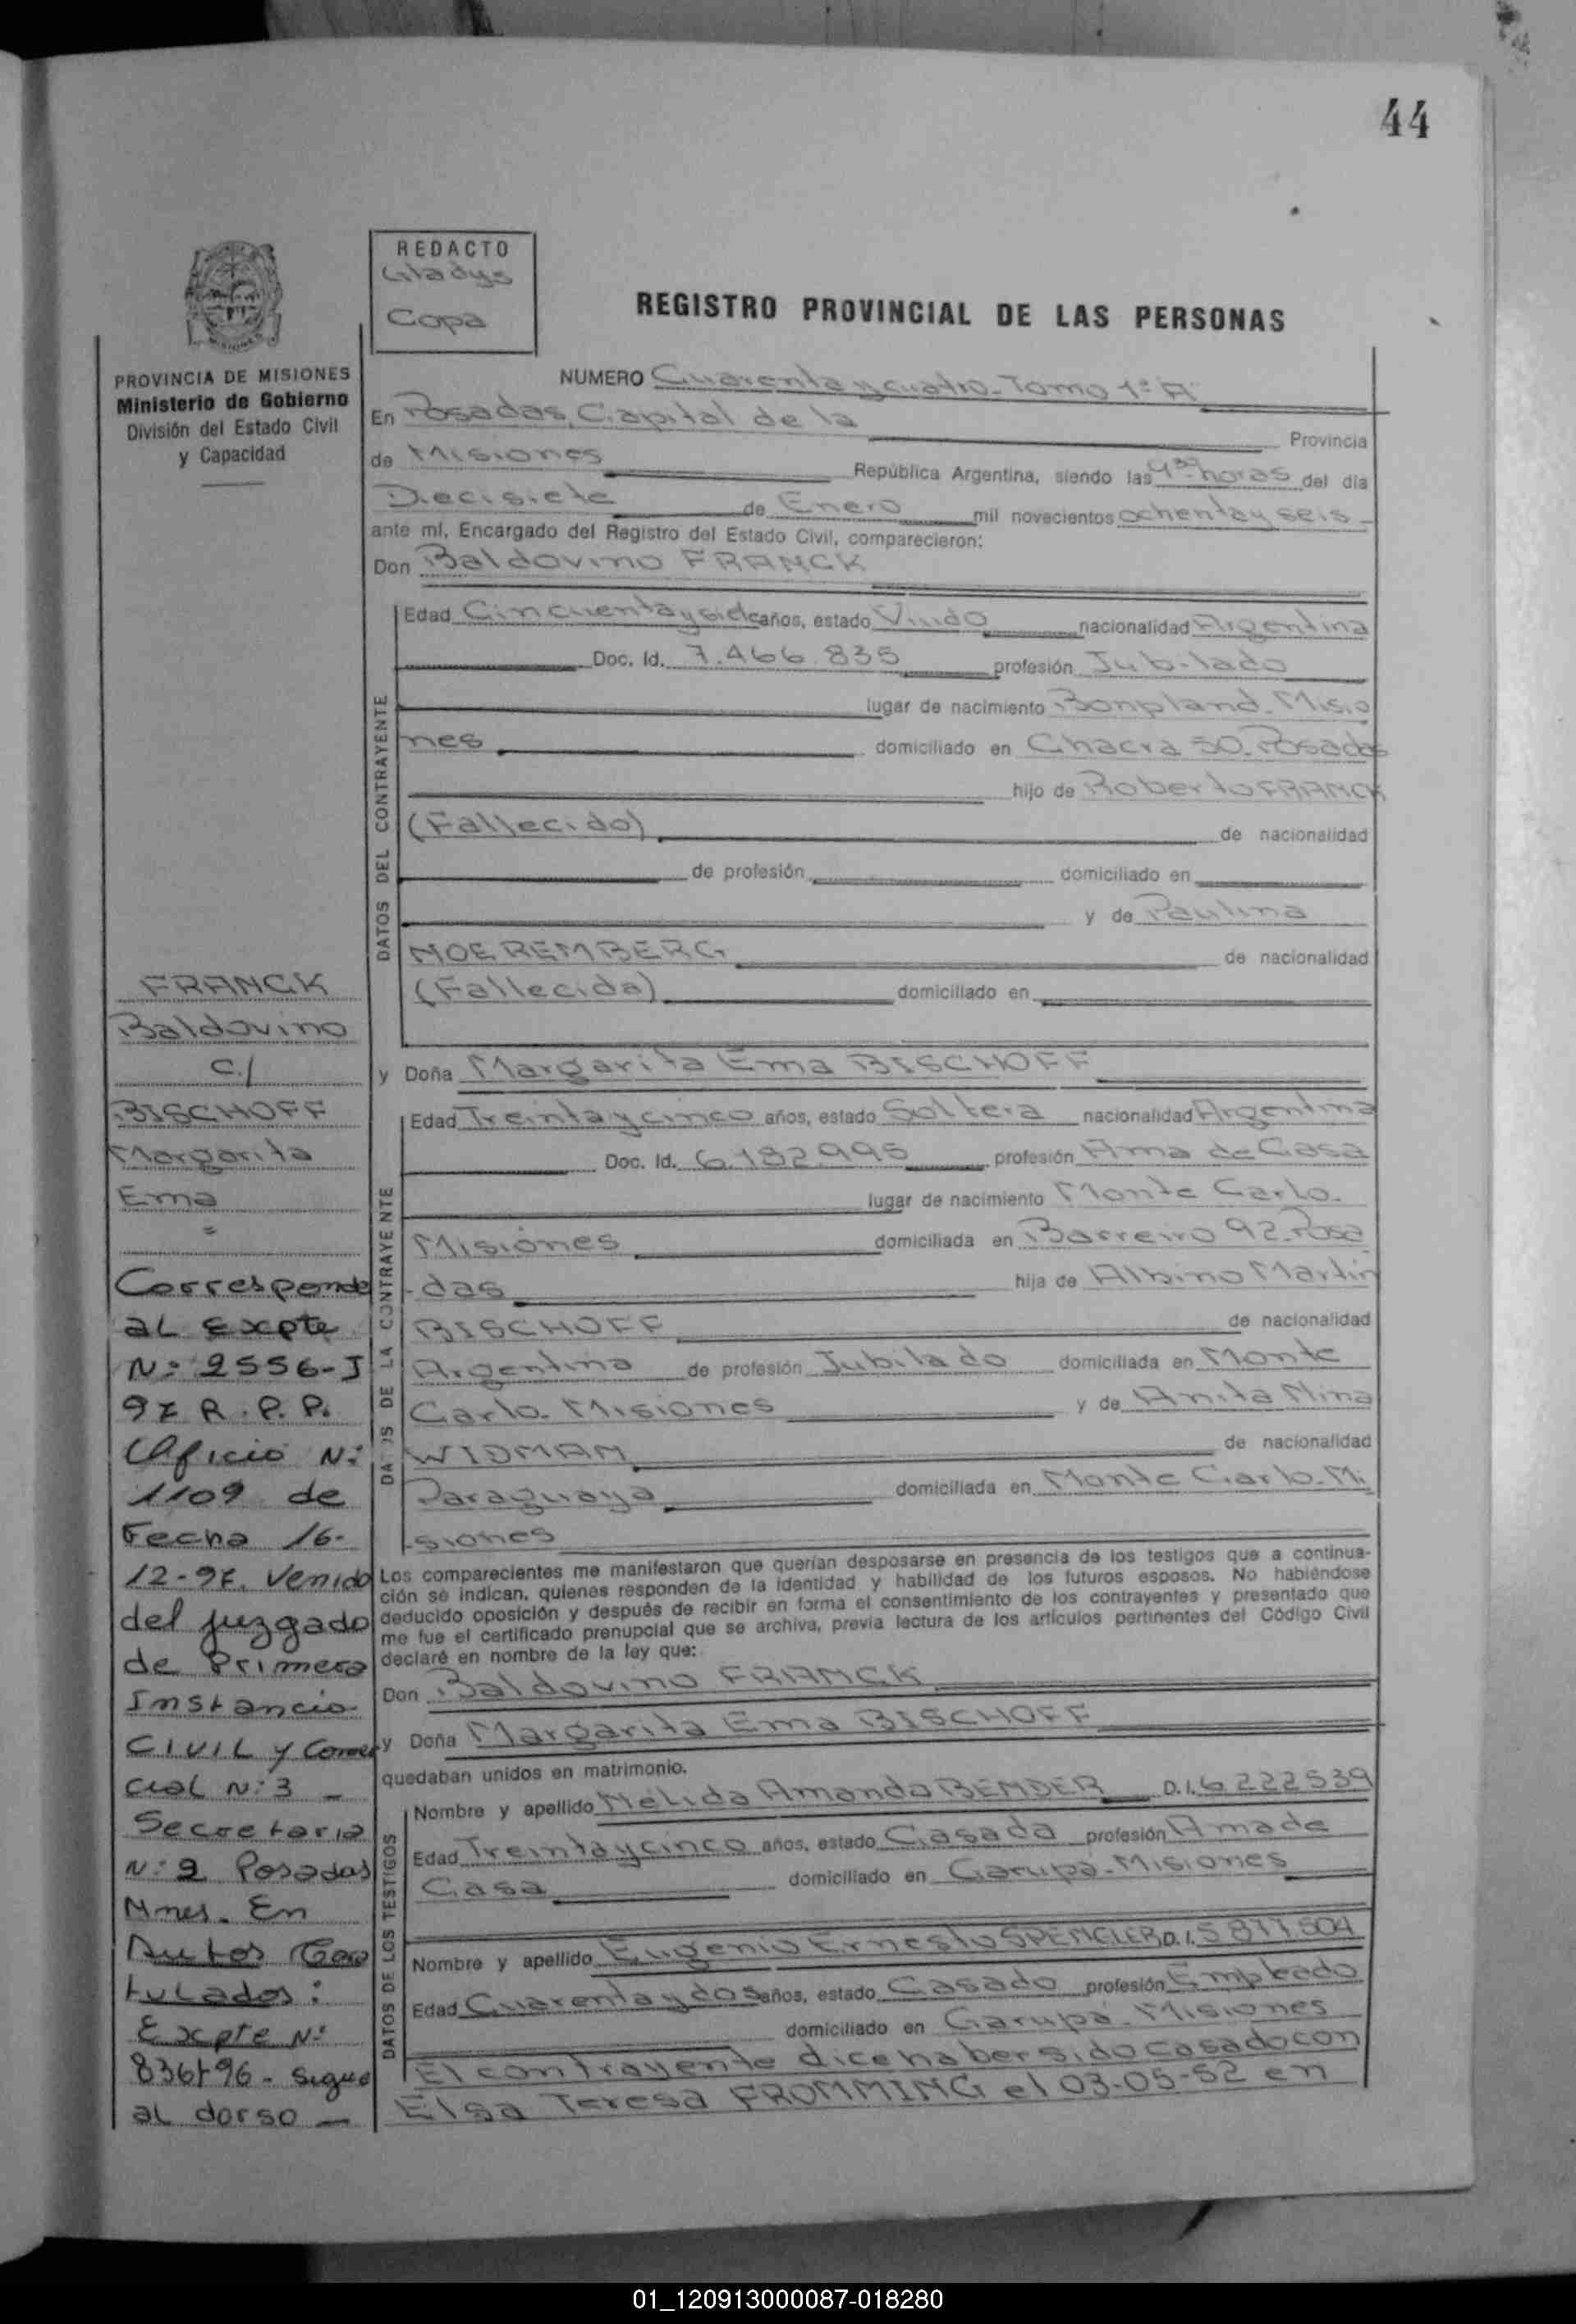 44
REDACTO
Gladys
Copa
REGISTRO PROVINCIAL DE LAS PERSONAS
PROVINCIA DE MISIONES
Ministerio de Gobierno
División del Estado Civil
y Capacidad
NUMERO Cuarenta y cuatro - Tomo 1º A
En Posadas, Capital de la Provincia
de Misiones República Argentina, siendo las horas del día
Diecisiete de Enero mil novecientos ochenta y seis -
ante mí, Encargado del Registro del Estado Civil, comparecieron:
Don Baldovino FRANCK
DATOS DEL CONTRAYENTE
Edad Cincuenta y siete años, estado Viudo nacionalidad Argentina
Doc. Id. 7.466.835 profesión Jubilado
lugar de nacimiento Bonpland. Misio
nes domiciliado en Chacra 50. Posadas
hijo de Roberto FRANCK
(Fallecido) de nacionalidad
de profesión domiciliado en
y de Paulina
NOEREMBERG de nacionalidad
(Fallecida) domiciliado en
y Doña Margarita Ema BISCHOFF
DATOS DE LA CONTRAYENTE
Edad Treinta y cinco años, estado Soltera nacionalidad Argentina
Doc. Id. 6.182.995 profesión Ama de Casa
lugar de nacimiento Monte Carlo.
Misiones domiciliada en Barreiro 92. Posa
-das hija de Albino Martin
BISCHOFF de nacionalidad
Argentina de profesión Jubilado domiciliada en Monte
Carlo. Misiones y de Anita Nina
WIDMAN de nacionalidad
Paraguaya domiciliada en Monte Carlo. Mi
-siones
Los comparecientes me manifestaron que querían desposarse en presencia de los testigos que a continua-
ción se indican, quienes responden de la identidad y habilidad de los futuros esposos. No habiéndose
deducido oposición y después de recibir en forma el consentimiento de los contrayentes y presentado que
me fue el certificado prenupcial que se archiva, previa lectura de los artículos pertinentes del Código Civil
declaré en nombre de la ley que:
Don Baldovino FRANCK
y Doña Margarita Ema BISCHOFF
quedaban unidos en matrimonio.
DATOS DE LOS TESTIGOS
Nombre y apellido Nelida Amanda BENDER D.I. 6222539
Edad Treinta y cinco años, estado Casada profesión Ama de
Casa domiciliado en Garupá - Misiones
Nombre y apellido Eugenio Ernesto SPENGLER D.I. 5877504
Edad Cuarenta y dos años, estado Casado profesión Empleado
domiciliado en Garupá. Misiones
El contrayente dice haber sido casado con
Elsa Teresa FROMMING el 03-05-52 en
FRANCK
Baldovino
c/
BISCHOFF
Margarita
Ema
=
Corresponde
al Expte
Nº 2556-J
97 R.P.P.
Oficio Nº
1109 de
Fecha 16-
12-97. Venido
del juzgado
de Primera
Instancia
CIVIL y Comer
cial Nº 3 -
Secretaria
Nº 2 Posadas
Mnes. En
Autos Cara
tulados:
Expte Nº
836/96 - sigue
al dorso -
01_120913000087-018280